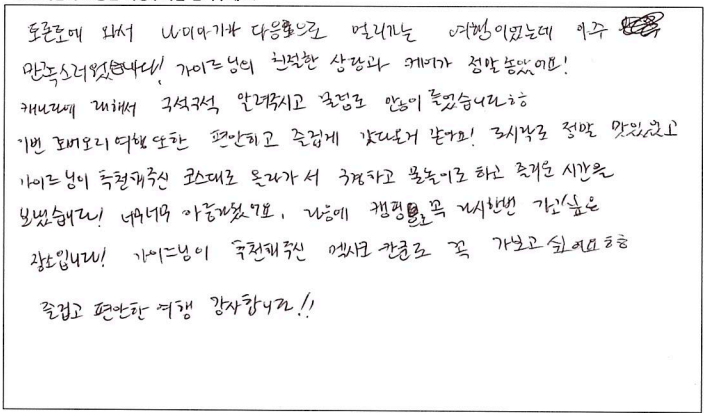 토론토에 와서 나이아가라 다음으로 멀리가는 여행이었는데 아주
만족스러웠습니다! 가이드님의 친절한 상담과 케어가 정말 좋았어요!
캐나다에 대해서 구석구석 알려주시고 꿀팁도 많이 들었습니다ㅎㅎ
이번 토버모리 여행 또한 편안하고 즐겁게 갔다온거 같아요! 도시락도 정말 맛있었고
가이드님이 추천해주신 코스대로 올라가서 구경하고 물놀이도 하고 즐거운 시간을
보냈습니다! 너무너무 아름다웠구요, 다음에 캠핑으로 꼭 다시한번 가고싶은
장소입니다! 가이드님이 추천해주신 멕시코 칸쿤도 꼭 가보고 싶어요ㅎㅎ
즐겁고 편안한 여행 감사합니다!!